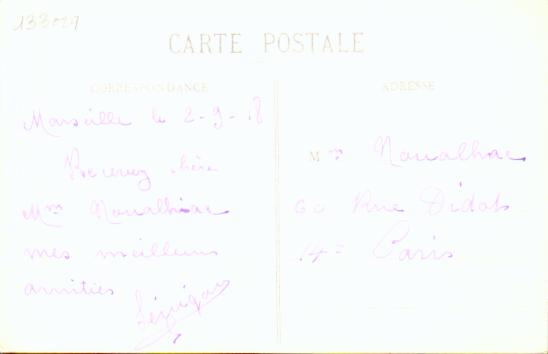 133029
CARTE POSTALE
CORRESPONDANCE
ADRESSE
Marseille le 2-9-18
Recevez chère
Mme Noualhac
mes meilleurs
amitiés
Mme Noualhac
60 Rue Didot
14= Paris